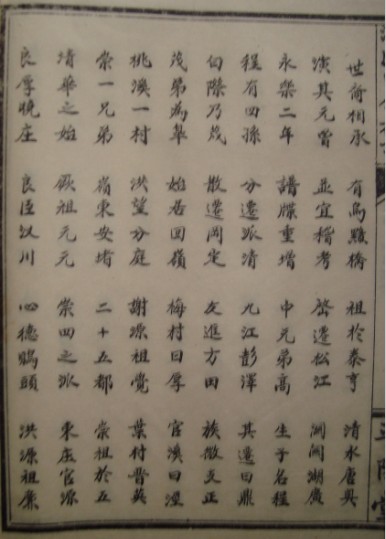 世裔相承 有烏黟橋 祖於泰亨 清水唐興
演其元曾 並宜稽考 啓遷松江 湖廣
永樂二年 譜牒重增 中元弟高 生子名程
程有四孫 分遷派清 九江彭澤 其遷曰鼎
伯際乃茂 散遷岡定 友進方田 族散支正
茂第為 始居回嶺 梅村曰厚 官溪曰澄
桃溪一村 洪望分庭 謝源祖覺 葉村普英
崇一兄弟 嶺東安堵 二十五都 崇祖於五
清華之始 厥祖元元 崇四之派 東庄官源
良厚曉庄 良臣汊川 心德頭 洪源祖廉